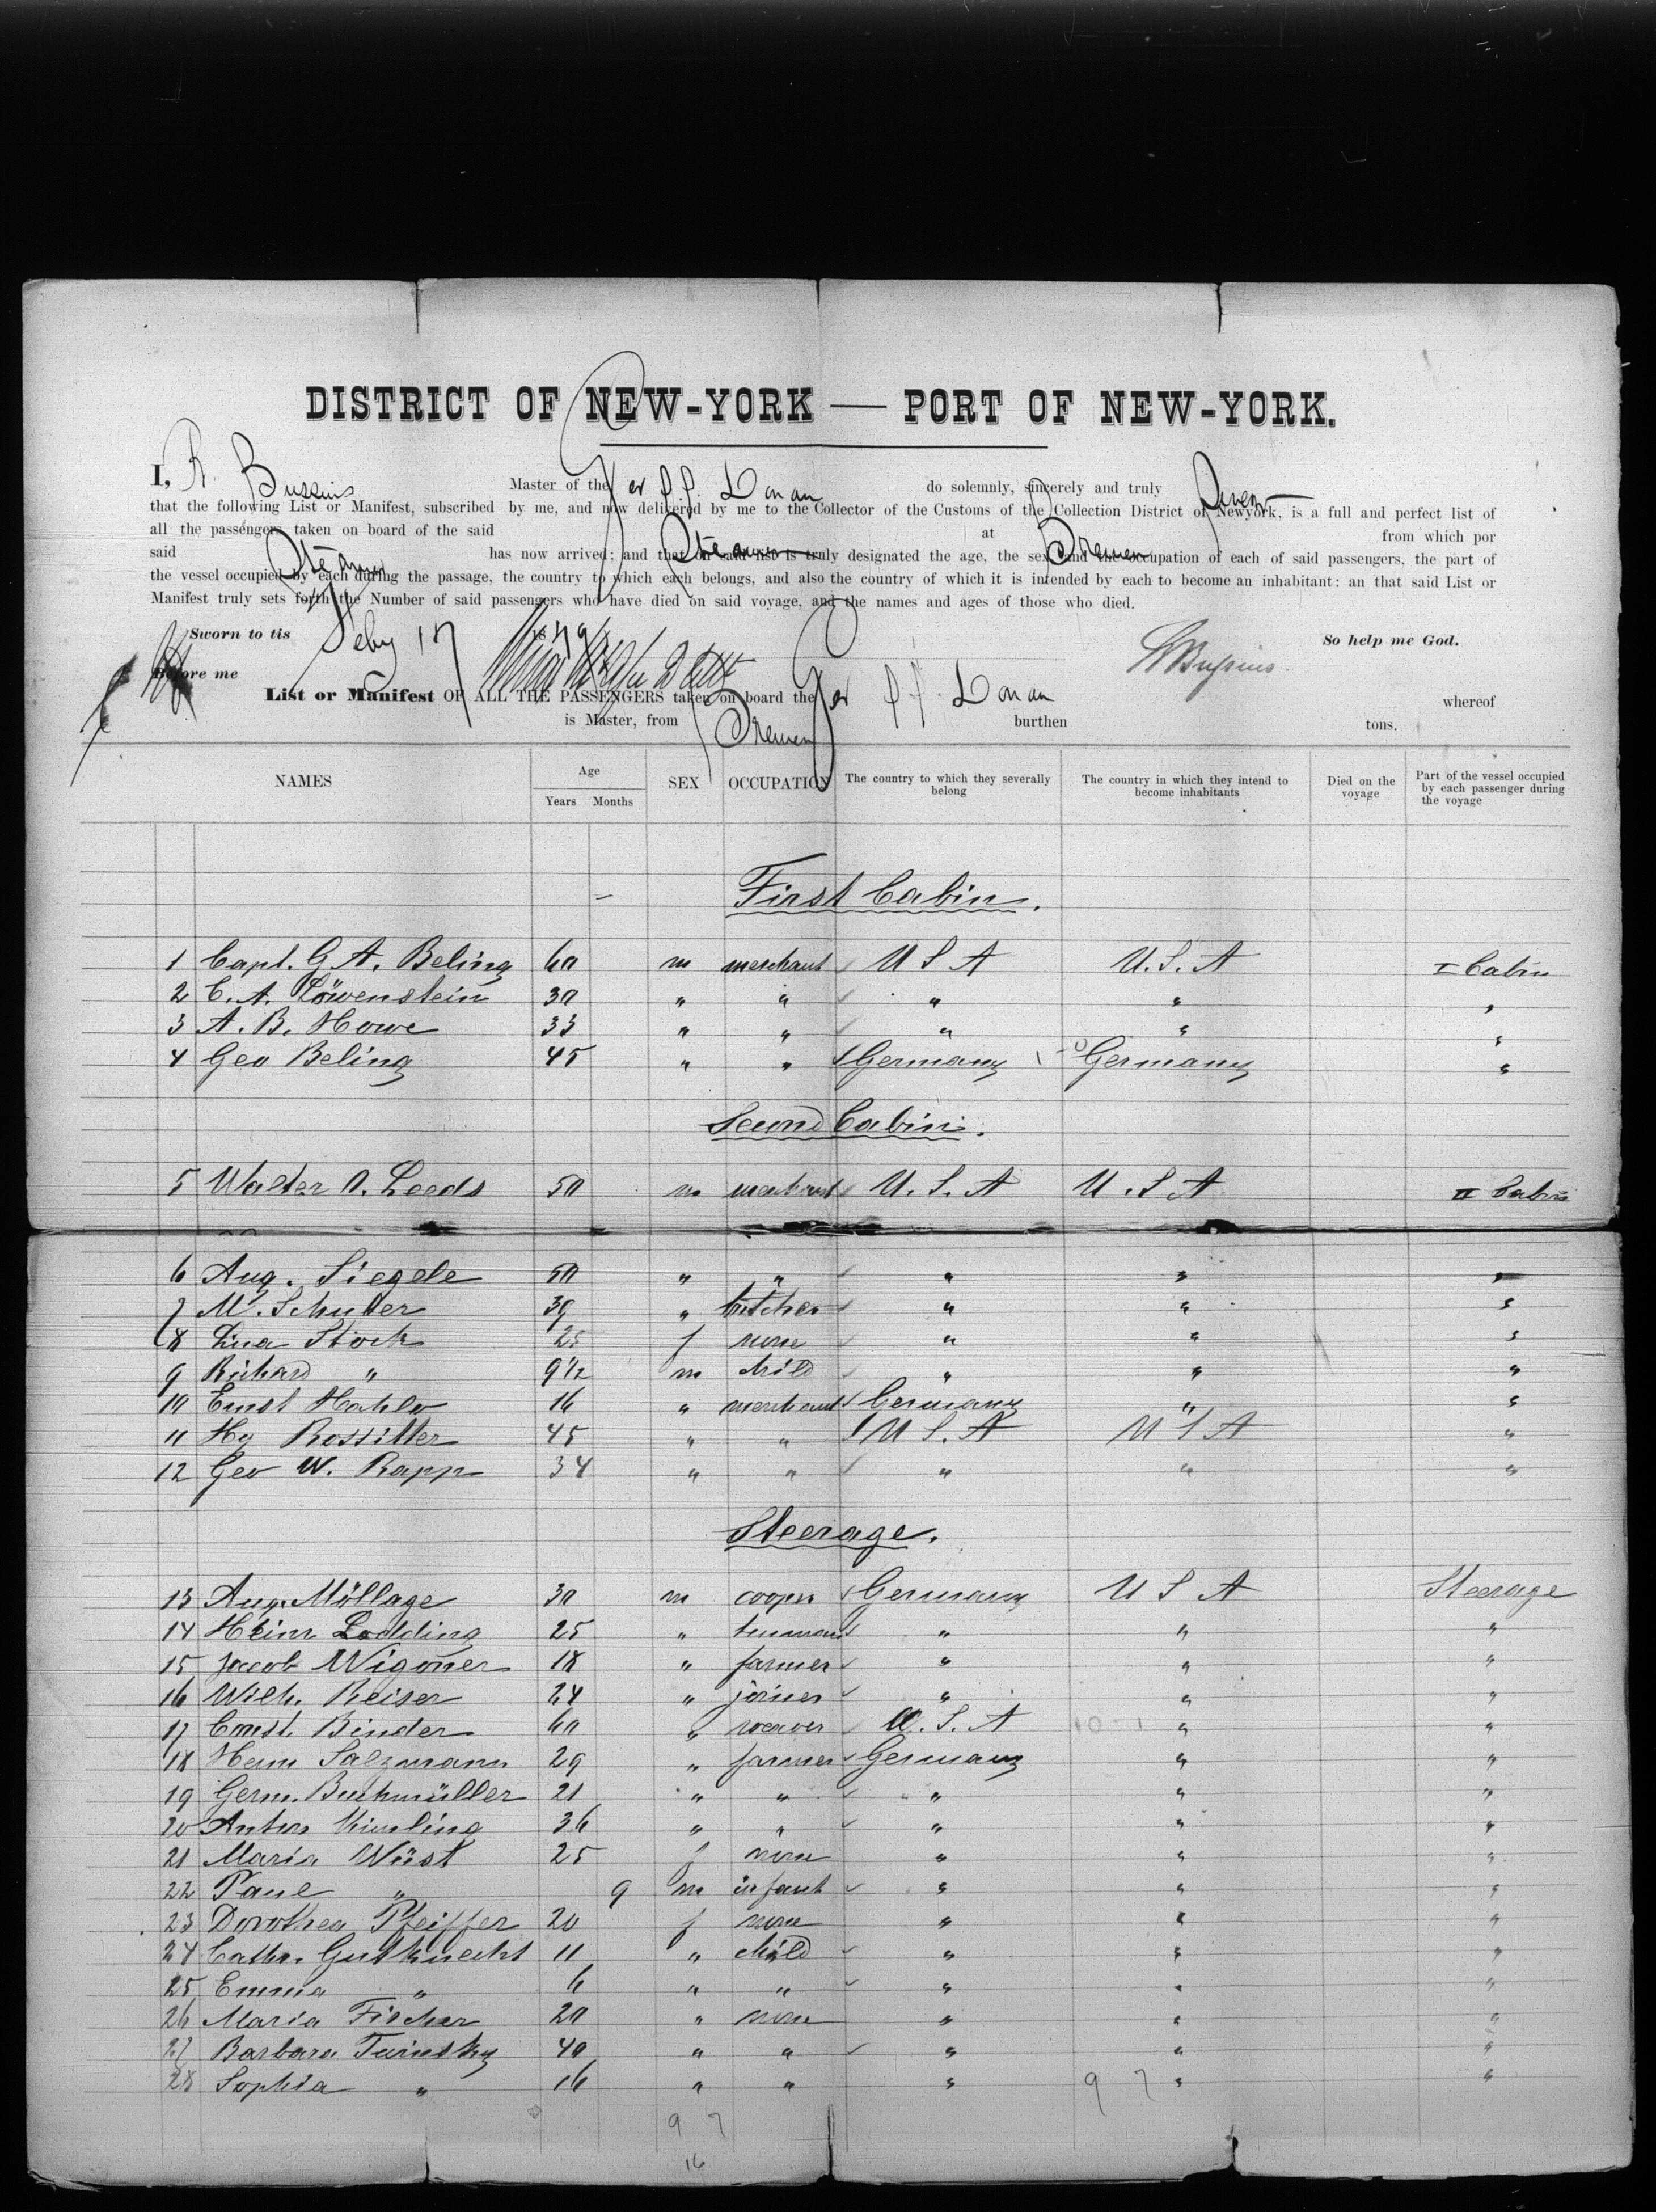 DISTRICT OF NEW-YORK — PORT OF NEW-YORK.
I, R. Bussius Master of the Ger SS. Donau do solemnly, sincerely and truly swear
that the following List or Manifest, subscribed by me, and now delivered by me to the Collector of the Customs of the Collection District of Newyork, is a full and perfect list of
all the passengers taken on board of the said Steamer at Bremen from which por
said Steamer has now arrived; and that on said list is truly designated the age, the sex and the occupation of each of said passengers, the part of
the vessel occupied by each during the passage, the country to which each belongs, and also the country of which it is intended by each to become an inhabitant: an that said List or
Manifest truly sets forth the Number of said passengers who have died on said voyage, and the names and ages of those who died.
Sworn to tis Feby 17 1879 So help me God.
Before me R Bussius
List or Manifest OF ALL THE PASSENGERS taken on board the Ger SS. Donau whereof
is Master, from Bremen burthen tons.
NAMES Age Years Months SEX OCCUPATION The country to which they severally belong The country in which they intend to become inhabitants Died on the voyage Part of the vessel occupied by each passenger during the voyage
First Cabin.
1 Capt. G A. Beling 60 m merchant U S A U.S.A I Cabin
2 C. A. Löwenstein 30 " " " " "
3 A. B. Howe 33 " " " " "
4 Geo Beling 45 " " Germany Germany "
Second Cabin.
5 Walter O. Leeds 50 m merchant U.S.A U.S A II Cabin
6 Aug. Siegele 50 " " " " "
7 M. Schutter 39 " butcher " " "
8 Lina Stock 25 f none " " "
9 Richard " 9 1/2 m child " " "
10 Ernst Hahlo 16 " merchant Germany " "
11 Hy Rossitter 45 " " U S. A U S A "
12 Geo W. Rapp 34 " " " " "
Steerage.
13 Aug. Möllage 30 m cooper Germany U S A Steerage
14 Heinr Lodding 25 " " " "
15 Jacob Wigoner 18 " farmer " " "
16 Wilh. Reiser 24 " joiner " " "
17 Const. Binder 60 " weaver U.S.A " "
18 Herm Salzmann 29 " farmer Germany " "
19 Germ. Buchmüller 21 " " " " "
20 Anton Kimling 36 " " " " "
21 Maria Wüst 25 f none " " "
22 Paul " 9 m infant " " "
23 Dorothea Pfeiffer 20 f none " " "
24 Cathr. Gutknecht 11 " child " " "
25 Emma " 6 " " " " "
26 Maria Fischer 20 " none " " "
27 Barbara 40 " " " " "
28 Sophia " 16 " " " 9 7 " "
9 7
16